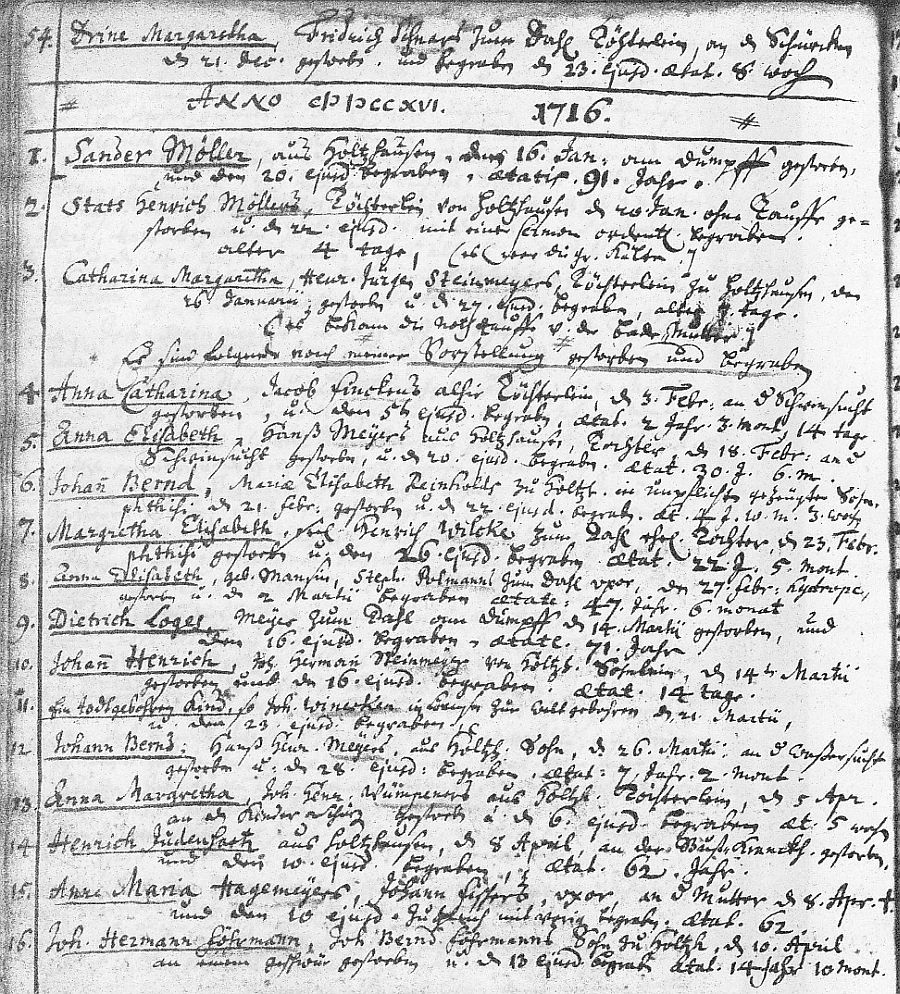 54. Trine Margaretha, Fridrich Schnars zum Dahl Töchterlein, an d Schürcken
den 21. Dec. gestorb. und begraben d 23. ejusd. ætat. 8. woch
# ANNO CIƆIƆCCXVI. 1716. #
1. Sander Möller, aus Holtzhausen, den 16. Jan: am Dumpff gestorben,
und den 20. ejusd begraben, ætatis. 91. Jahr.
2. Stats Henrich Möllers, Töchterlein von Holtzhausen d 20 Jan. ohne Tauffe ge-
storben u. d. 22. ejusd. mit einer sermon ordentl. begraben.
alter 4 tage,
3. Catharina Margaretha, Henr. Jürgen Steinmeyers, Töchterlein zu Holtzhausen, den
26 Januarii, gestorben u. d 27. ejusd. begraben, alter tage.
(es bekam die Nothtauffe v. der Bademutter)
Es sind folgende nach meiner Vorstellung gestorben und begraben
4. Anna Catharina, Jacob Finckens alhie Töchterlein, d 3. Febr: an d Schwinsucht
gestorben, u. den 5t ejusd. begraben, ætat. 2 Jahr. 3. mont. 14 tage
5. Anna Elisabeth, Hanß Meyers aus Holtzhausen, Tochter, d 18. Febr: an d
Schwinsucht gestorben, u. d 20. ejusd. begraben. ætat. 30. J. 6. m.
6. Johañ Bernd, Mariæ Elisabeth Reinholds zu Holtzh. in unpflichten gezeugter Sohn,
phthisi, d 21. Febr: gestorben u. d 22. ejusd. begrab. æt. 4 J. 10. m. 3. woch
7. Margretha Elisabeth, sehl. Henrich Wilcke zum Dahl ehel. Tochter, d 23. Febr.
phthisi gestorben u. den 26. ejusd. begraben ætat. 22 J. 5 mont.
8. Anna Elisabeth, geb. Steph. Polmanns zum Dahl uxor, den 27. Febr: hydrope,
gestorben u. d 2 Martii begraben ætate: 47. Jahr. 6. monat
9. Dietrich Loges, Meyer zum Dahl am Dumpff d 14. Martii gestorben und
den 16. ejusd. begraben, ætate. 71. Jahr
10. Johañ Henrich, Joh. Hermañ Steinmeyer von Holtzh. Söhnlein, d 14ten Martii
gestorben und den 16. ejusd. begraben. ætat. 14 tage.
11. Ein todtgebohren Kind, so Joh. zur welt gebohren d 21. Martii,
u. den 23. ejusd. begraben.
12. Johann Bernd, Hanß Henr. Meyers, aus Holtzh. Sohn, d 26. Martii: an d Waßersucht
gestorben u. d 28. ejusd: begraben, ætat: 7 Jahr. 2. mont.
13. Anna Margretha, Joh. Henr. Wümpeners aus Holtzh. Töchterlein, d 5 Apr.
an den Kinder gestorb u. d 6. ejusd. begraben æt. 5 wochen
14 Henrich Judenhertz aus Holtzhausen, d 8 April, an der Brust Kranckh. gestorben,
und den 10. ejusd. begraben, ætat. 62. Jahr.
15. Anne Maria Hagemeyers, Johann Fissers, uxor, an d Mutter d 8. Apr. †.
und den 10 ejusd. zugleich mit vorig begrab. ætat. 62
16. Joh. Hermann Föhrmann, Joh. Bernd Föhrmanns Sohn zu Holtzh. d 10. April
an einem geschwür gestorben u. d 13 ejusd begrab ætat. 14 Jahr 10 mont.